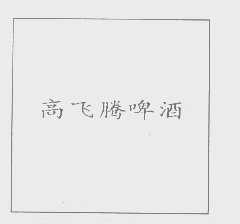 高飞腾啤酒